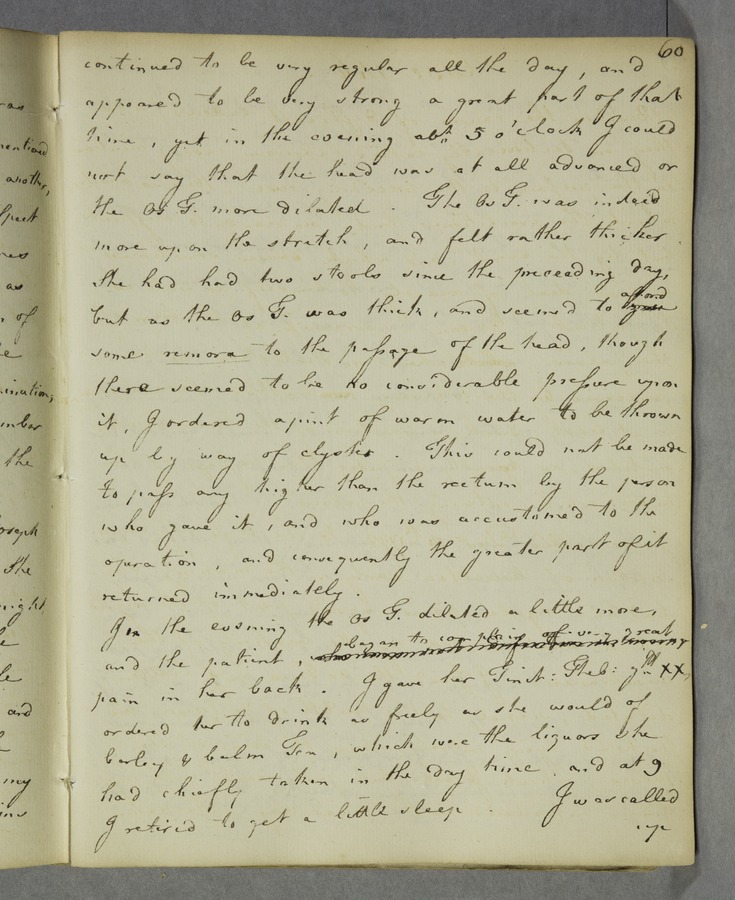 60
continued to be very regular all the day, and
appeared to be very strong a great part of that
time, yet in the evening abt. 5 o'clock I could
not say that the head was at all advanced or
the Os T. more dilated. The Os T. was indeed
more upon the stretch, and felt rather thicker.
She had had two stools since the preceeding day,
but as the Os T. was thick, and seem'd to afford
some remora to the passage of the head, though
there seemed to be no considerable pressure upon
it, I ordered a pint of warm water to be thrown
up by way of clyster. This could not be made
to pass any higher than the rectum by the person
who gave it, and who was accustomed to the
operation, and consequently the greater part of it
returned immediately.
In the evening the Os T. dilated a little more,
and the patient, began to complain of very great
pain in her back. I gave her Tinct: Theb: gtt XX,
ordered her to drink as freely as she would of
barley & balm Tea, which were the liquors she
had chiefly taken in the day time, and at 9
I retir'd to get a little sleep. I was called
up
ras
mentioned
another,
as
of
mination,
the
Joseph
She
night,
and
my